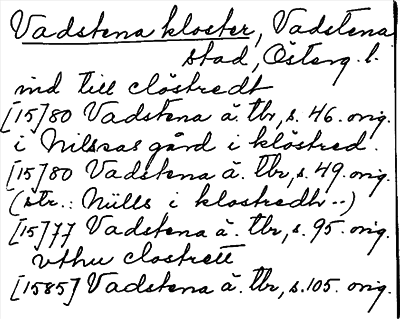 Vadstena kloster, Vadstena
stad, Österg. l.
ind till clöstredt
[15]80 Vadstena ä. tbr, s. 46. orig.
i Nilsas gård i klöstred.
[15]80 Vadstena ä. tbr, s. 49. orig.
(str.: Nills i klostredh --)
[15]77 Vadstena ä. tbr, s. 95. orig.
vthu clostrett
[1585] Vadstena ä. tbr, s. 105. orig.